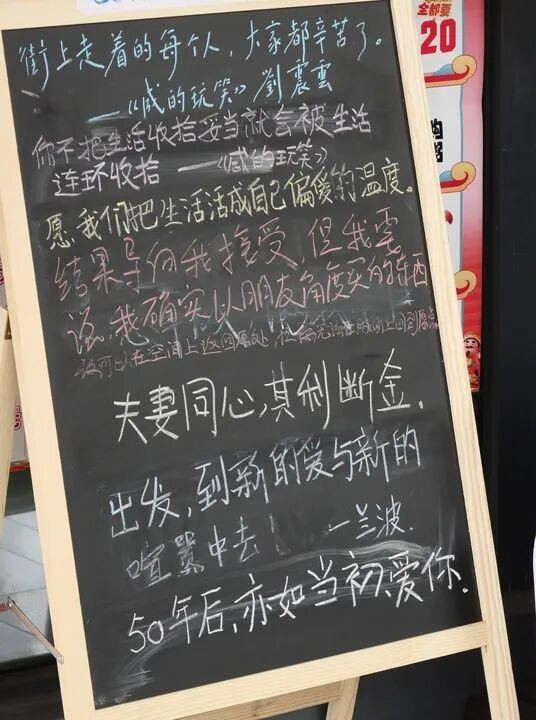 街上走着的每个人，大家都辛苦了。
—《咸的玩笑》劉震雲
你不把生活收拾妥当就会被生活
连环收拾 —《咸的玩笑》
愿我们把生活活成自己偏爱的温度。
结果导向我接受，但我需
我确实以朋友角度买的东西
可以在空间上返回原处
夫妻同心,其利断金。
出发,到新的爱与新的
喧嚣中去! —兰波.
50年后,亦如当初,爱你.
全都要
20